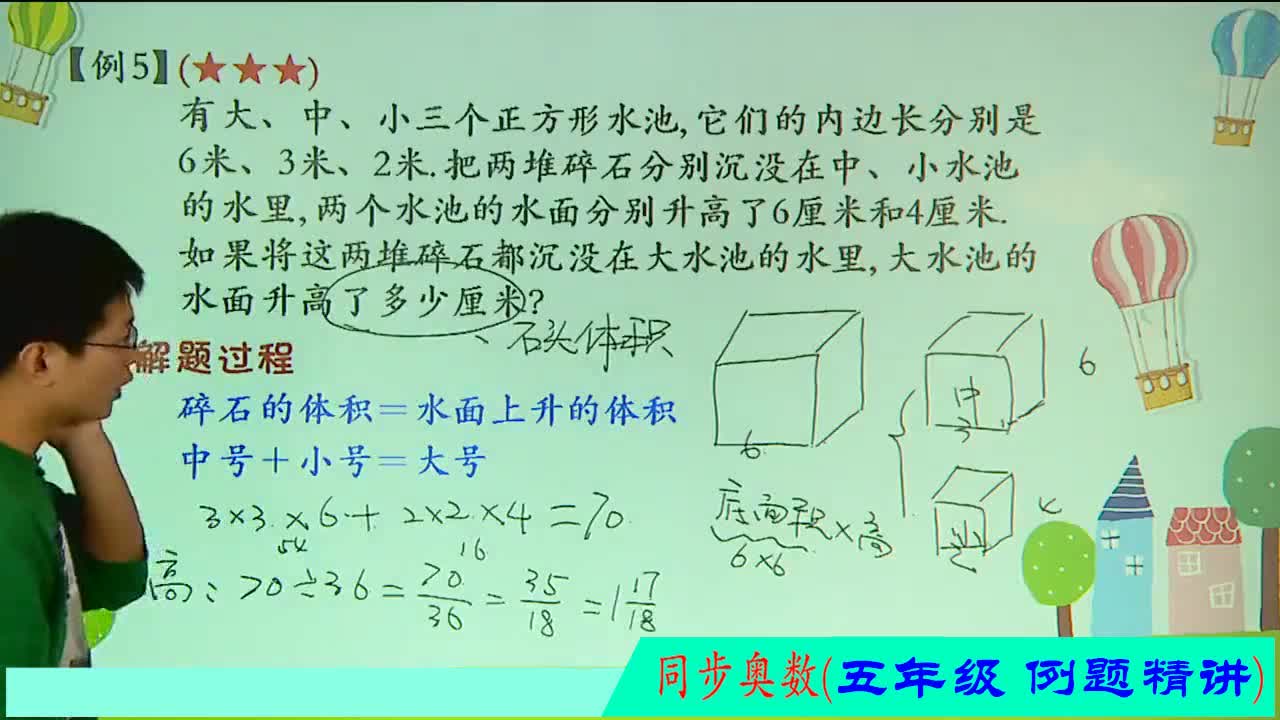 【例5】(★★★)
有大、中、小三个正方形水池,它们的内边长分别是
6米、3米、2米.把两堆碎石分别沉没在中、小水池
的水里,两个水池的水面分别升高了6厘米和4厘米.
如果将这两堆碎石都沉没在大水池的水里,大水池的
水面升高了多少厘米?
、石头体积
解题过程
碎石的体积=水面上升的体积
中号+小号=大号
3×3×6+2×2×4=70
54 16
高: 70÷36=70/36=35/18=1 17/18
6
中
3
6
小
2
4
底面积×高
6×6
同步奥数(五年级 例题精讲)